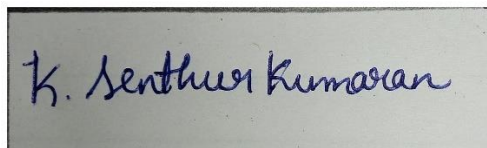 K. Senthur Kumaran